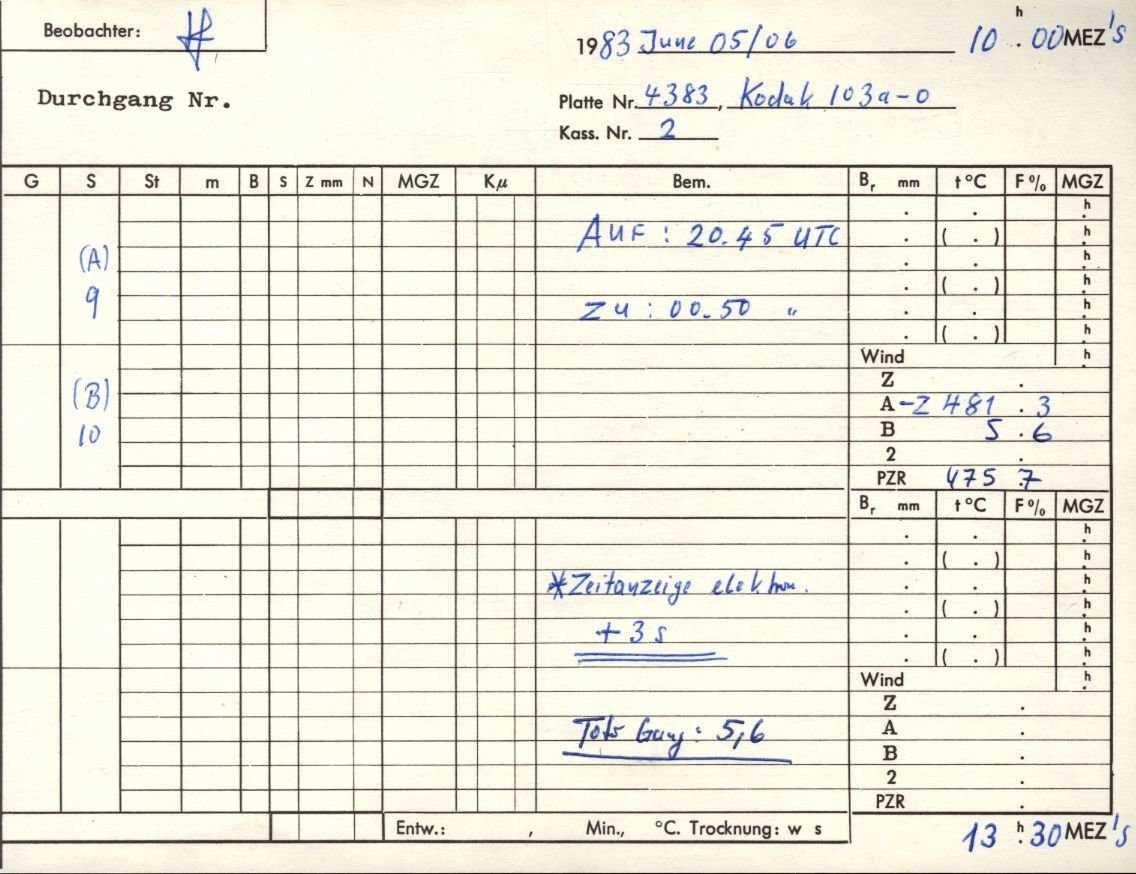 Beobachter:
1983 June 05/06 10 h . 00 MEZ's
Durchgang Nr.
Platte Nr. 4383, Kodak 103a-0
Kass. Nr. 2
G S St m B S Z mm N MGZ Kμ Bem. Br mm t °C F % MGZ
. . h
Auf : 20.45 UTC . ( . ) h
(A) . . h
9 . ( . ) h
Zu : 00.50 " . . h
. ( . ) h
Wind h
Z .
(B) A -Z 481 . 3
10 B 5 . 6
2 .
PZR 475 . 7
Br mm t °C F % MGZ
. . h
. ( . ) h
*Zeitanzeige elektron. . . h
. ( . ) h
+ 3 s . . h
. ( . ) h
Wind h
Z .
Gang: 5,6 A .
B .
2 .
PZR .
Entw.: , Min., °C. Trocknung: w s
13 h . 30 MEZ's